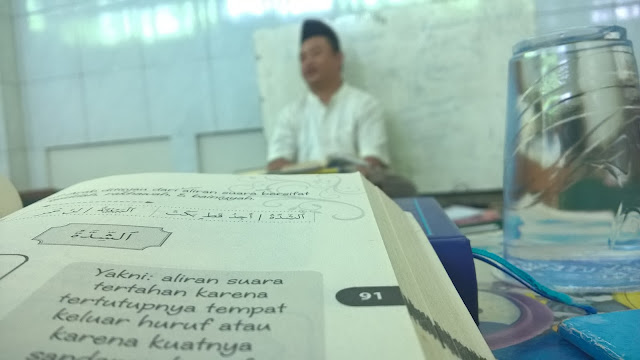 dengan dari aliran suara bersifat
الشدة / أجد قط بكت
الشدة
Yakni: aliran suara
tertahan karena
tertutupnya tempat
keluar huruf atau
karena kuatnya
91